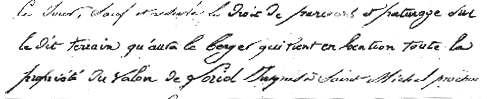 ce jour, sauf et réservé le droit de parcours & paturage sur
le dit terrain qu'aura le berger qui tient en location toute la
propriété du valon de Jaquet à Saint Michel